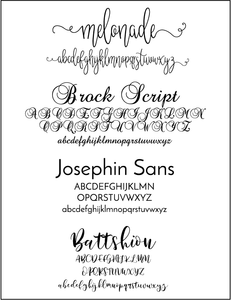 melonade
abcdefghijklmnopqrstuvwxyz
Brock Script
ABCDEFGHIJKLM
NOPQRSTUVWXYZ
abcdefghijklmnopqrstuvwxyz
Josephin Sans
ABCDEFGHIJKLMN
OPQRSTUVWXYZ
abcdefghijklmnopqrstuvwxyz
Battshion
ABCDEFGHIJKLMN
OPQRSTUVWXYZ
abcdefghijklmnopqrstuvwxyz